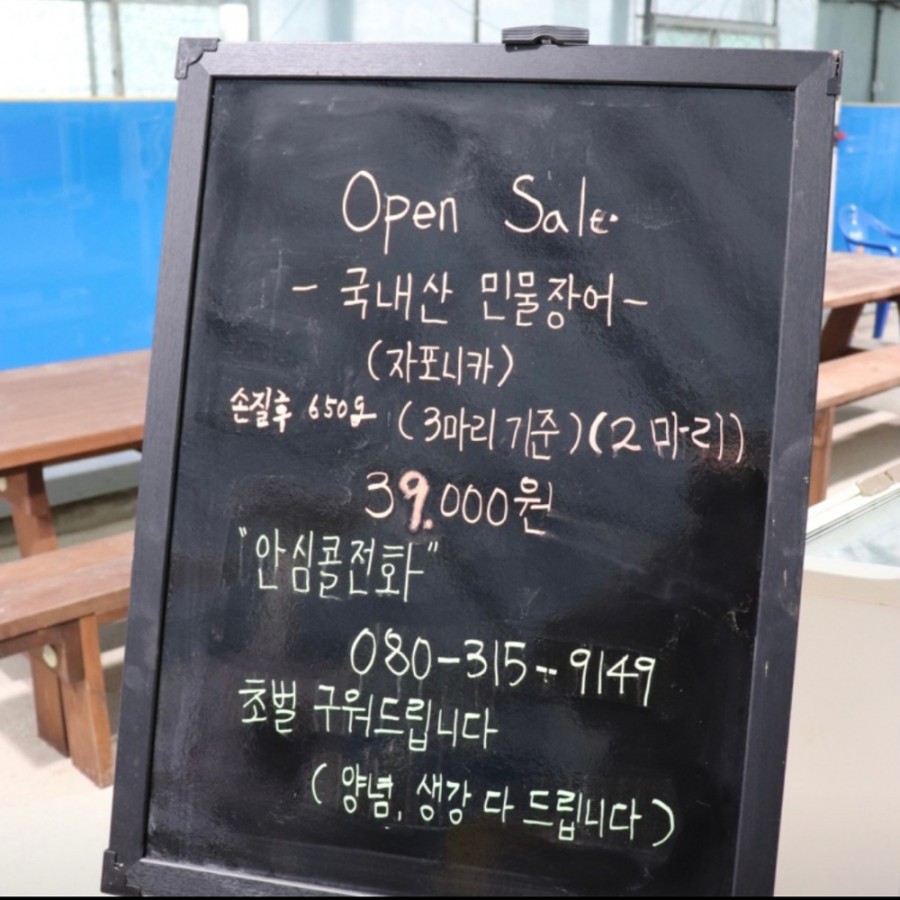 Open Sale.
- 국내산 민물장어 -
(자포니카)
손질후 650g (3마리 기준)(2마리)
39.000원
"안심콜전화"
080-315-9149
초벌 구워드립니다
(양념, 생강 다 드립니다)